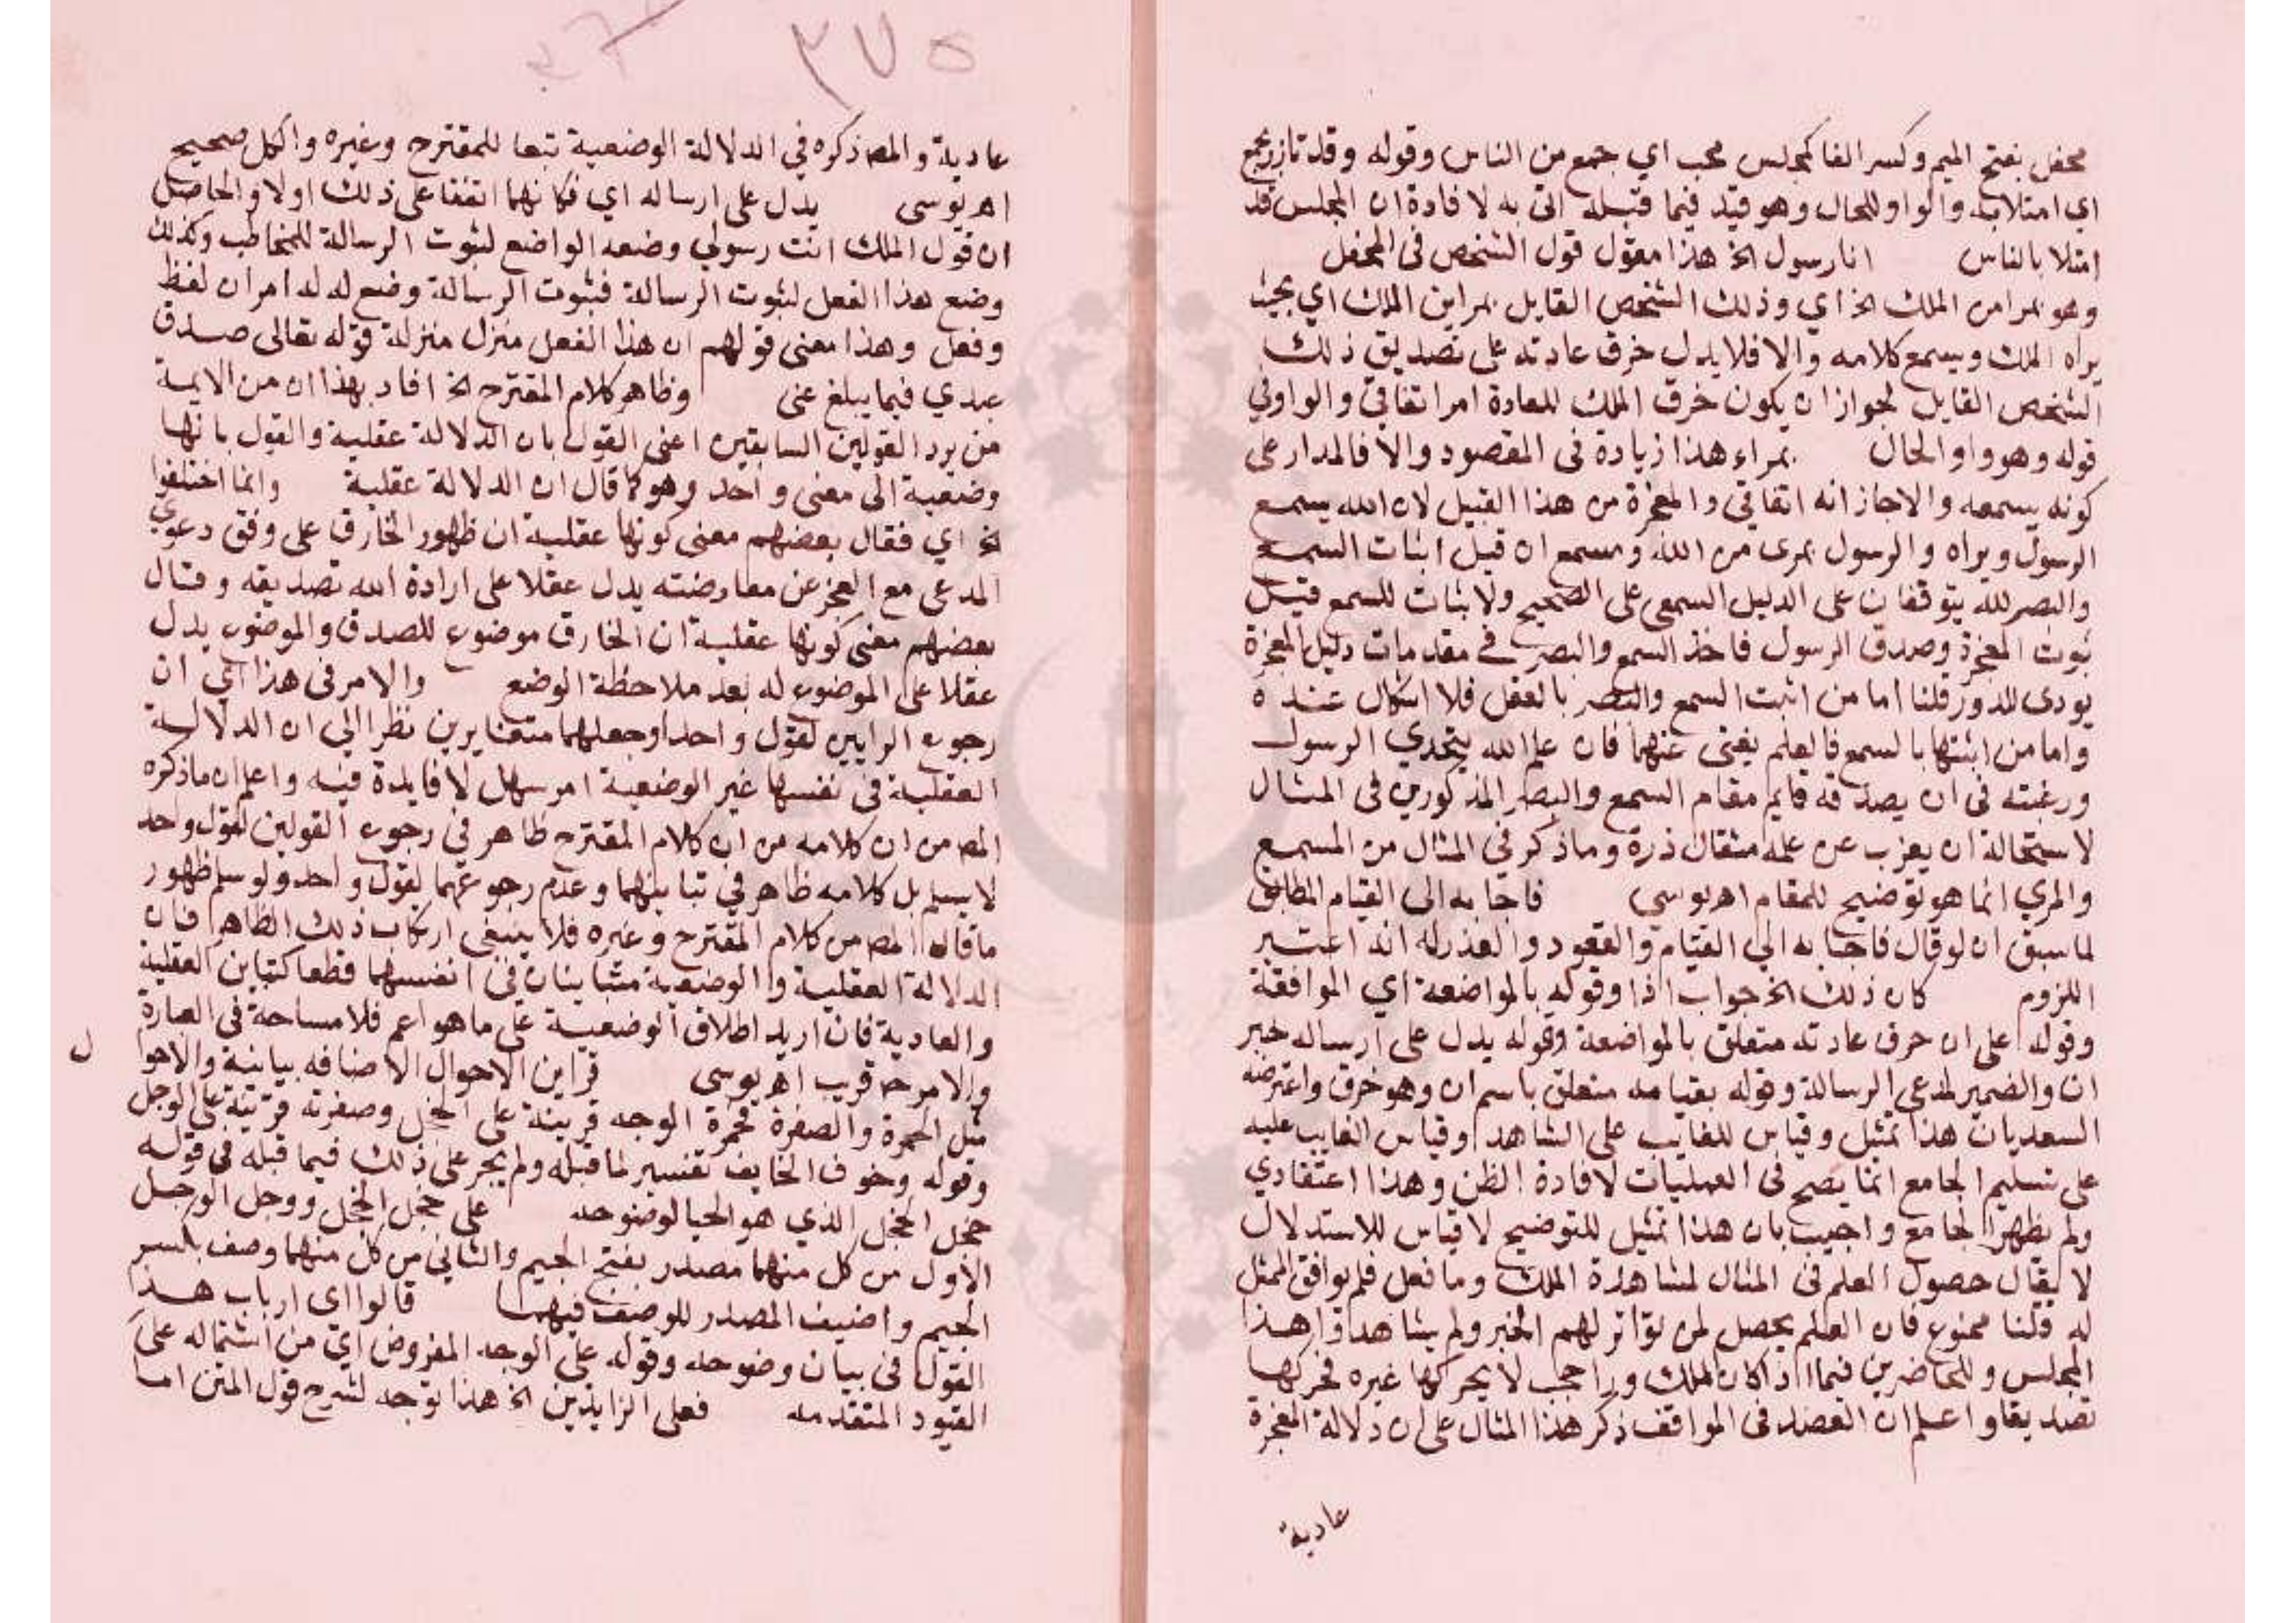 محفل بفتح الميم وكسر الفا كمجلس محب اي جمع من الناس وقوله وقد تازر بجمع
اي امتلا به والواو للحال وهو قيد فيما قبله اتى به لافادة ان المجلس قد
امتلا بالناس انا رسول الخ هذا مقول قول الشخص في المحفل
وهو بمرا من الملك الخ اي وذلك الشخص القايل بمراين الملك اي بحيث
يراه الملك ويسمع كلامه والا فلا يدل خرق عادته على تصديق ذلك
الشخص القايل لجواز ان يكون خرق الملك للعادة امر اتفاقي والواو في
قوله وهو واو الحال بمراء هذا زيادة في المقصود والا فالمدار على
كونه يسمعه والا جاز انه اتفاقي والمعجزة من هذا القبيل لان الله يسمع
الرسول ويراه والرسول بمرى من الله ومسمع ان قيل اثبات السمع
والبصر لله يتوقفان على الدليل السمعي على الصحيح ولا ثبات للسمع قبل
ثبوت المعجزة وصدق الرسول فاخذ السمع والبصر في مقدمات دليل المعجزة
يودى للدور قلنا اما من اثبت السمع والبصر بالعقل فلا اشكال عنده
واما من اثبتها بالسمع فالعلم يغنى عنهما فان علم الله بتحدي الرسول
ورغبته في ان يصدقه قايم مقام السمع والبصر المذكورين في المثال
لاستحالة ان يعزب عن علمه مثقال ذرة وما ذكر في المثال من المسمع
والمري انما هو توضيح للمقام اهـ يوسي فاجابه الى القيام المطابق
لما سبق ان لو قال فاجابه الى القيام والقعود والعذر له انه اعتبر
اللزوم كان ذلك الخ جواب اذا وقوله بالمواضعة اي الموافقة
وقوله على ان خرق عادته متعلق بالمواضعة وقوله يدل على ارساله خبر
ان والضمير لمدعى الرسالة وقوله بقيامه متعلق باسم ان وهو خرق واعترضه
السعد بان هذا تمثيل وقياس للغايب على الشاهد وقياس الغايب عليه
على تسليم الجامع انما يصح في العمليات لافادة الظن وهذا اعتقادي
ولم يظهر الجامع واجيب بان هذا تمثيل للتوضيح لا قياس للاستدلال
لا يقال حصول العلم في المثال لمشاهدة الملك وما فعل فلم يوافق الممثل
له قلنا ممنوع فان العلم يحصل لمن تواتر لهم الخبر ولم يشاهدوا هذا
المجلس وللحاضرين فيما اذا كان الملك ورا حجب لا يحركها غيره فحركها
تصديقا واعلم ان العضد في المواقف ذكر هذا المثال على ان دلالة المعجزة
عادية
٣٧٥
عادية والمص ذكره في الدلالة الوضعية تبعا للمقترح وغيره والكل صحيح
اهـ يوسي يدل على ارساله اي فكانهما اتفقا على ذلك اولا والحاصل
ان قول الملك انت رسولي وضعه الواضع لثبوت الرسالة للمخاطب وكذلك
وضع هذا الفعل لثبوت الرسالة فثبوت الرسالة وضع له له امران لفظ
وفعل وهذا معنى قولهم ان هذا الفعل منزل منزلة قوله تعالى صدق
عبدي فيما يبلغ عنى وظاهر كلام المقترح الخ افاد بهذا ان من الايمة
من يرد القولين السابقين اعنى القول بان الدلالة عقلية والقول بانها
وضعية الى معنى واحد وهو كما قال ان الدلالة عقلية وانما اختلفوا
الخ اي فقال بعضهم معنى كونها عقلية ان ظهور الخارق على وفق دعوي
المدعى مع العجز عن معارضته يدل عقلا على ارادة الله تصديقه وقال
بعضهم معنى كونها عقلية ان الخارق موضوع للصدق والموضوع يدل
عقلا على الموضوع له بعد ملاحظة الوضع والامر في هذا اي ان
رجوع الرايين لقول واحد او جعلهما متغايرين نظرا الى ان الدلالة
العقلية في نفسها غير الوضعية امر سهل لا فايدة فيه واعلم ان ما ذكره
المص من ان كلامه من ان كلام المقترح ظاهر في رجوع القولين لقول واحد
لا يسلم بل كلامه ظاهر في تباينهما وعدم رجوعهما لقول واحد ولو سلم ظهور
ما قاله المص من كلام المقترح وغيره فلا ينبغي ارتكاب ذلك الظاهر فان
الدلالة العقلية والوضعية متباينان في انفسهما قطعا كتباين العقلية
والعادية فان اريد اطلاق الوضعية على ما هو اعم فلا مساحة في العبارة
والامر ح قريب اهـ يوسي قراين الاحوال الاضافه بيانية والاحوا
ل
مثل الحمرة والصفرة فحمرة الوجه قرينة على الخجل وصفرته قرينة على الوجل
وقوله وخوف الخايف تفسير لما قبله ولم يجر على ذلك فيما قبله في قوله
خجل الخجل الذي هو الحيا لوضوحه على خجل الخجل ووجل الوجل
الاول من كل منهما مصدر بفتح الجيم والثاني من كل منهما وصف بكسر
الجيم واضيف المصدر للوصف فيهما قالوا اى ارباب هذا
القول في بيان وضوحه وقوله على الوجه المفروض اي من اشتماله على
القيود المتقدمه فعلى الزايدين الخ هذا توجه لشرح قول المتن اما